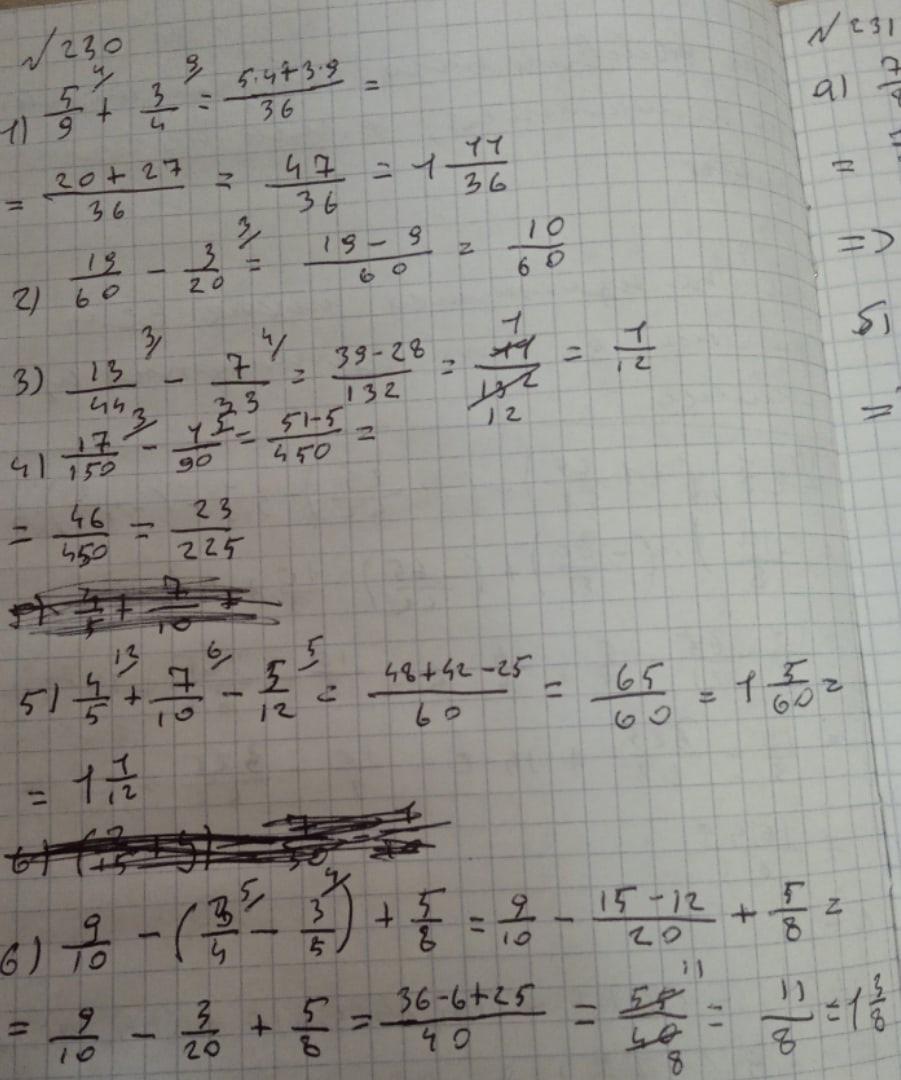 №230
1) 5/9 4/ + 3/4 9/ = (5·4+3·9)/36 =
= (20+27)/36 = 47/36 = 1 11/36
2) 19/60 - 3/20 3/ = (19-9)/60 = 10/60
3) 13/44 3/ - 7/33 4/ = (39-28)/132 = 11/132 1 12 = 1/12
4) 17/150 3/ - 1/90 5/ = (51-5)/450 =
= 46/450 = 23/225
5) 4/5 + 7/10 +
5) 4/5 12/ + 7/10 6/ - 5/12 5/ = (48+42-25)/60 = 65/60 = 1 5/60 =
= 1 1/12
6)
6) 9/10 - (3/4 5/ - 3/5 4/) + 5/8 = 9/10 - (15-12)/20 + 5/8 =
= 9/10 - 3/20 + 5/8 = (36-6+25)/40 = 55/40 11 8 = 11/8 = 1 3/8
№231
а) 7/8
=
=>
б)
=